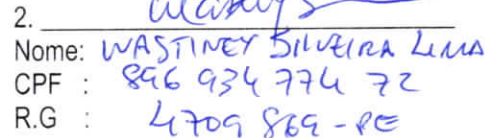 2.
Nome: WASTINEY SILVEIRA LIMA
CPF : 896 934 774 72
R.G : 4709 869-PE